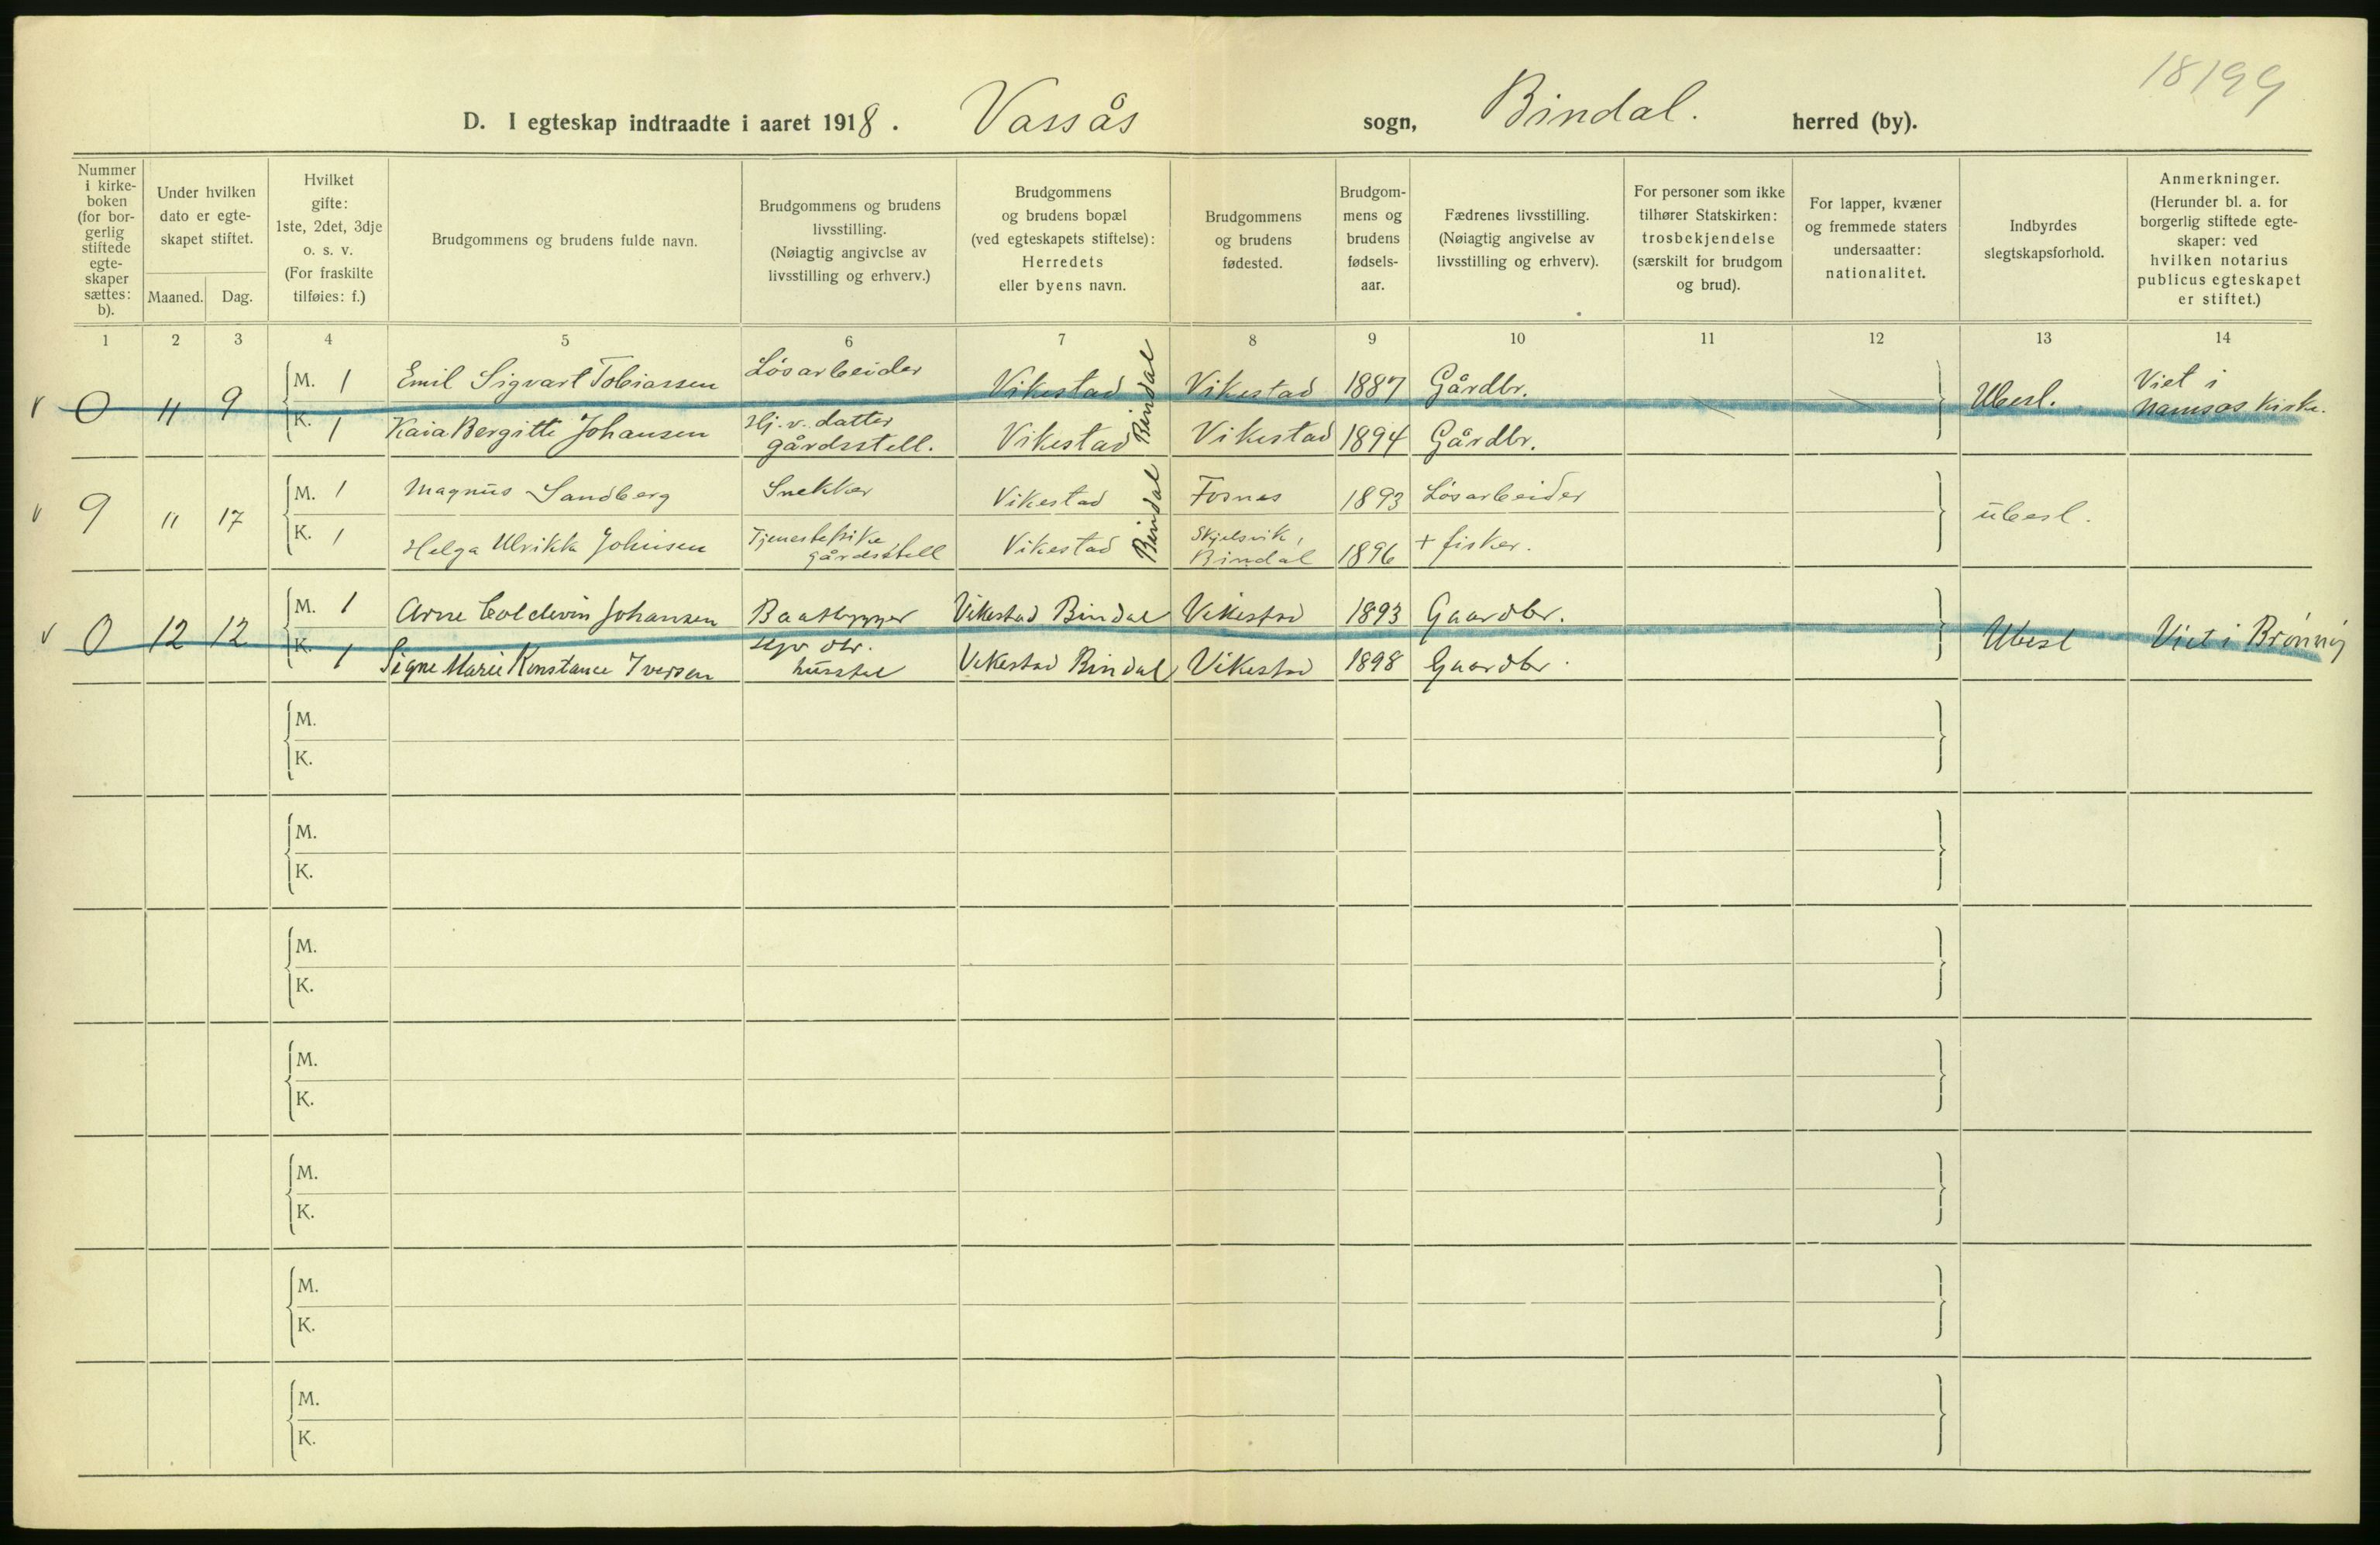 18199
D. I egteskap indtraadte i aaret 1918. Vassås sogn, Bindal. herred (by).
Nummer i kirke-boken (for bor-gerlig stiftede egte-skaper sættes: b).
Under hvilken dato er egte-skapet stiftet.
Maaned. Dag.
Hvilket gifte: 1ste, 2det, 3dje o. s. v. (For fraskilte tilføies: f.)
Brudgommens og brudens fulde navn.
Brudgommens og brudens livsstilling. (Nøiagtig angivelse av livsstilling og erhverv.)
Brudgommens og brudens bopæl (ved egteskapets stiftelse): Herredets eller byens navn.
Brudgommens og brudens fødested.
Brudgom-mens og brudens fødsels-aar.
Fædrenes livsstilling. (Nøiagtig angivelse av livsstilling og erhverv).
For personer som ikke tilhører Statskirken: trosbekjendelse (særskilt for brudgom og brud).
For lapper, kvæner og fremmede staters undersaatter: nationalitet.
Indbyrdes slegtskapsforhold.
Anmerkninger. (Herunder bl. a. for borgerlig stiftede egte-skaper: ved hvilken notarius publicus egteskapet er stiftet.)
1 2 3 4 5 6 7 8 9 10 11 12 13 14
v 0 11 9 M. 1 Emil Sigvart Tobiassen Løsarbeider Vikestad Bindal Vikestad 1887 Gårdbr. Ubesl. Viet i Namsos Kirke.
K. 1 Kaia Bergitte Johansen Hj. v. datter gårdsstell. Vikestad Vikestad 1894 Gårdbr.
v 9 11 17 M. 1 Magnus Sandberg Snekker Vikestad Bindal Fosnes 1893 Løsarbeider ubesl.
K. 1 Helga Ulrikke Johnsen Tjenestepike gårdsstell Vikestad Skjelsvik, Bindal 1896 + fisker.
v 0 12 12 M. 1 Arne Coldevin Johansen Baatbygger Vikestad Bindal Vikestad 1893 Gaardbr. Ubesl Viet i Brønnøy
K. 1 Signe Marie Konstance Iversen hjv dtr. husstel Vikestad Bindal Vikestad 1898 Gaardbr.
M.
K.
M.
K.
M.
K.
M.
K.
M.
K.
M.
K.
M.
K.